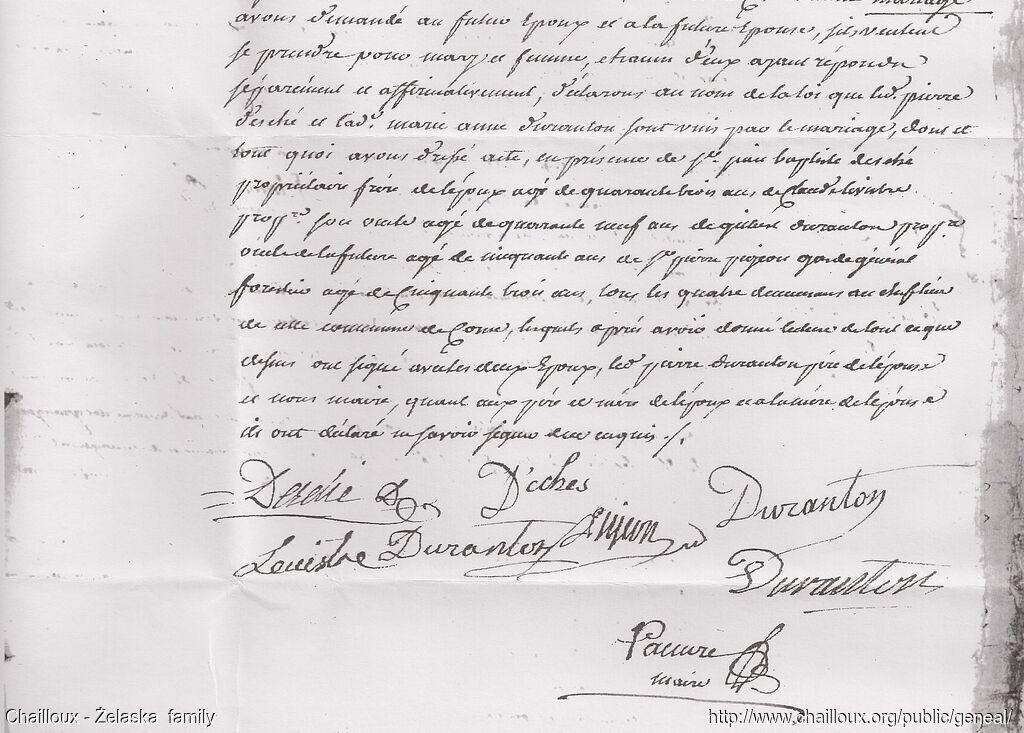 mariage
avons demandé au futur Epoux et a la future Epouse, s'ils veulent
se prendre pour mary et femme, et chacun d'eux ayant répondu
séparément et affirmativement, déclarons au nom de la loi que led. pierre
desché et lad. marie anne duranton sont unis par le mariage, dont et
tout quoi avons dressé acte, en présence de Sr. jean baptiste desché
propriétaire frère de lépoux agé de quarante trois ans de Claude
propre. son oncle agé de quarante neuf ans de gilbert duranton propre.
oncle de la future agé de cinquante ans de Sr. pierre pigeon garde général
forestier agé de Cinquante trois ans, tous les quatre demeurans au chef lieu
de cette commune de Cosne, lesquels après avoir donné lecture de tout ce que
dessus ont signé avec les deux Epoux, led pierre duranton père de lépouse
et nous maire, quant aux père et mère de lépoux et a la mère de lépouse
ils ont déclaré ne savoir signer de ce enquis ./.
Desché D'eches Duranton
Duranton Pijeon
Duranton
maire
Chailloux - Želaska family
http://www.chailloux.org/public/geneal/